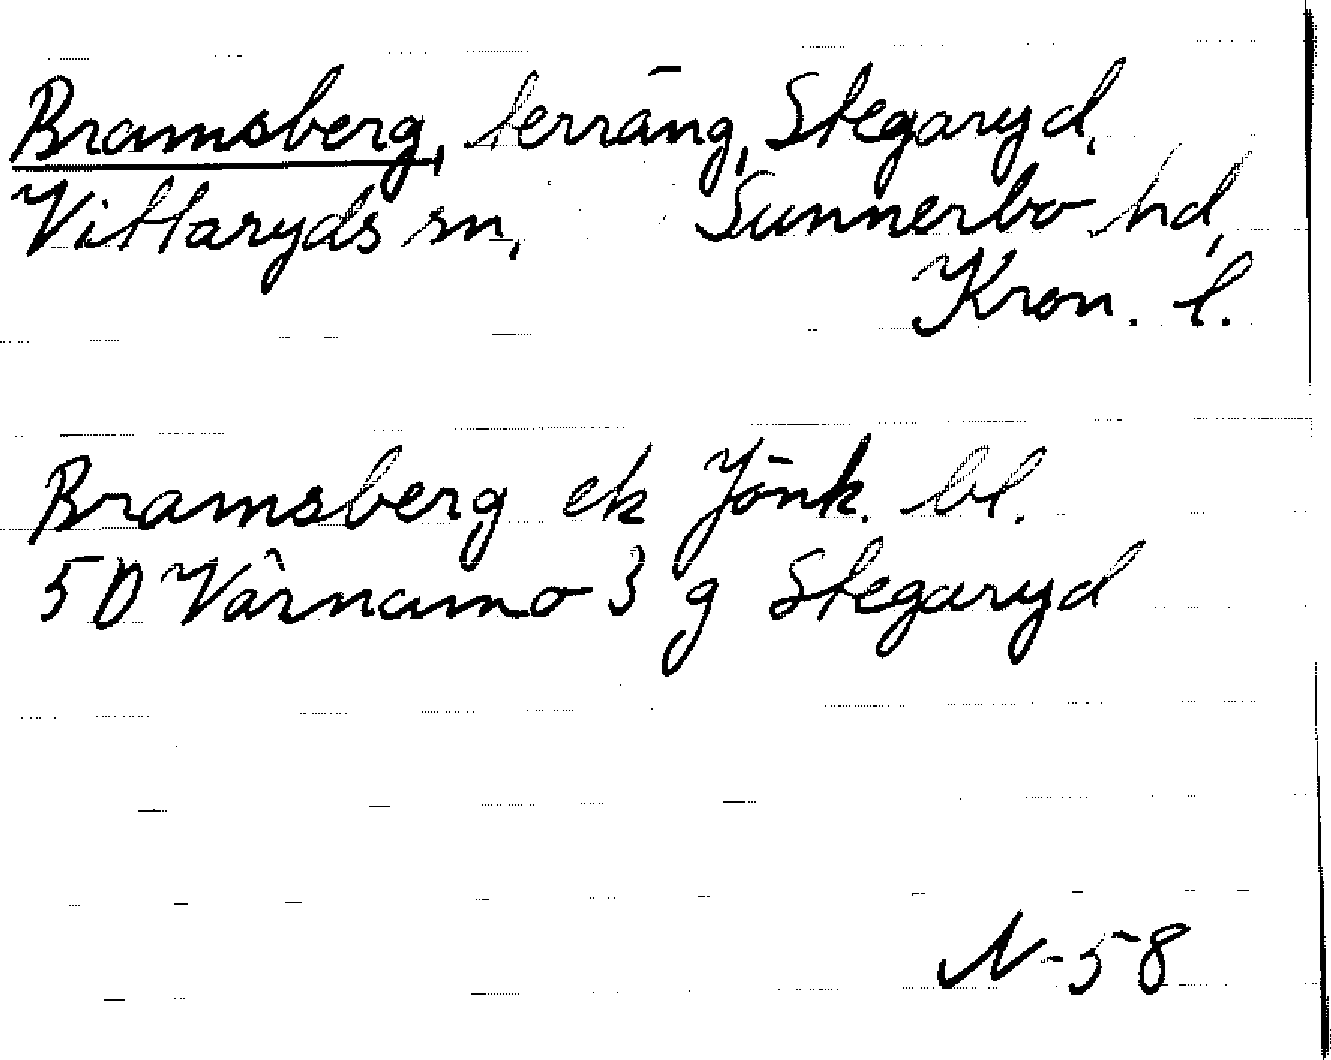 Bramsberg, terräng, Stegaryd,
Vittaryds sn, Sunnerbo hd,
Kron. l.
Bramsberg ek Jönk. bl.
5D Värnamo 3 g Stegaryd
N-58